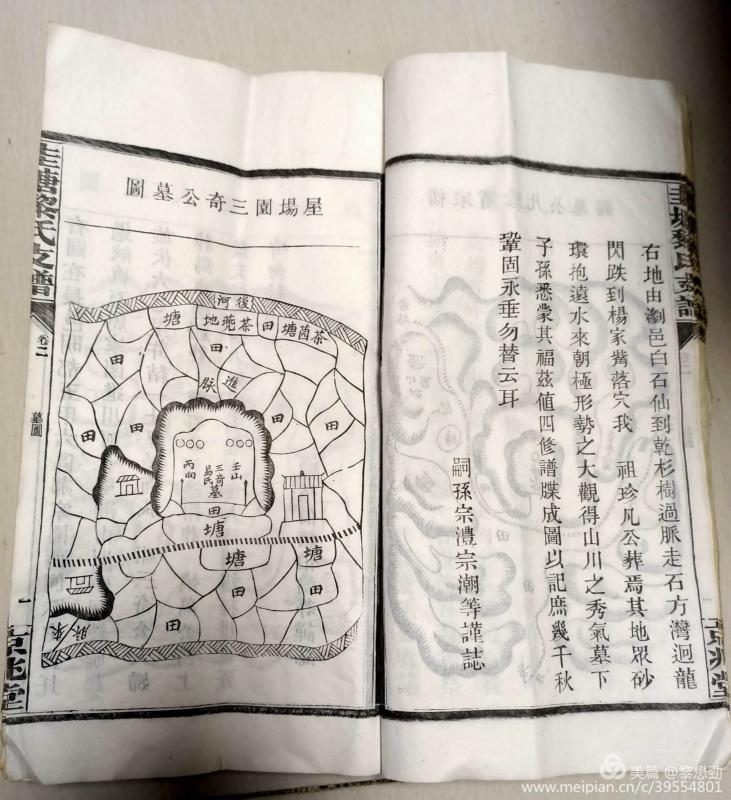 右地由瀏邑白石仙到乾杉樹過脈走石方灣迴龍
閃跌到楊家觜落穴我 祖珍凡公葬焉其地眾砂
環抱遠水來朝極形勢之大觀得山川之秀氣墓下
子孫悉蒙其福茲值四修譜牒成圖以記庶幾千秋
鞏固永垂勿替云耳
嗣孫宗禮宗潮等謹誌
京兆堂
屋場園三奇公墓圖
後河
茶茵塘
田
茶蔸地
塘
田
田
田
進脈
田
田
田
壬山
三奇墓
易氏
丙向
田
塘
塘
塘
田
田
田
脈來
圭塘黎氏支譜
卷二
墓圖
一
京兆堂
美篇 @黎懋勁
www.meipian.cn/c/39554801